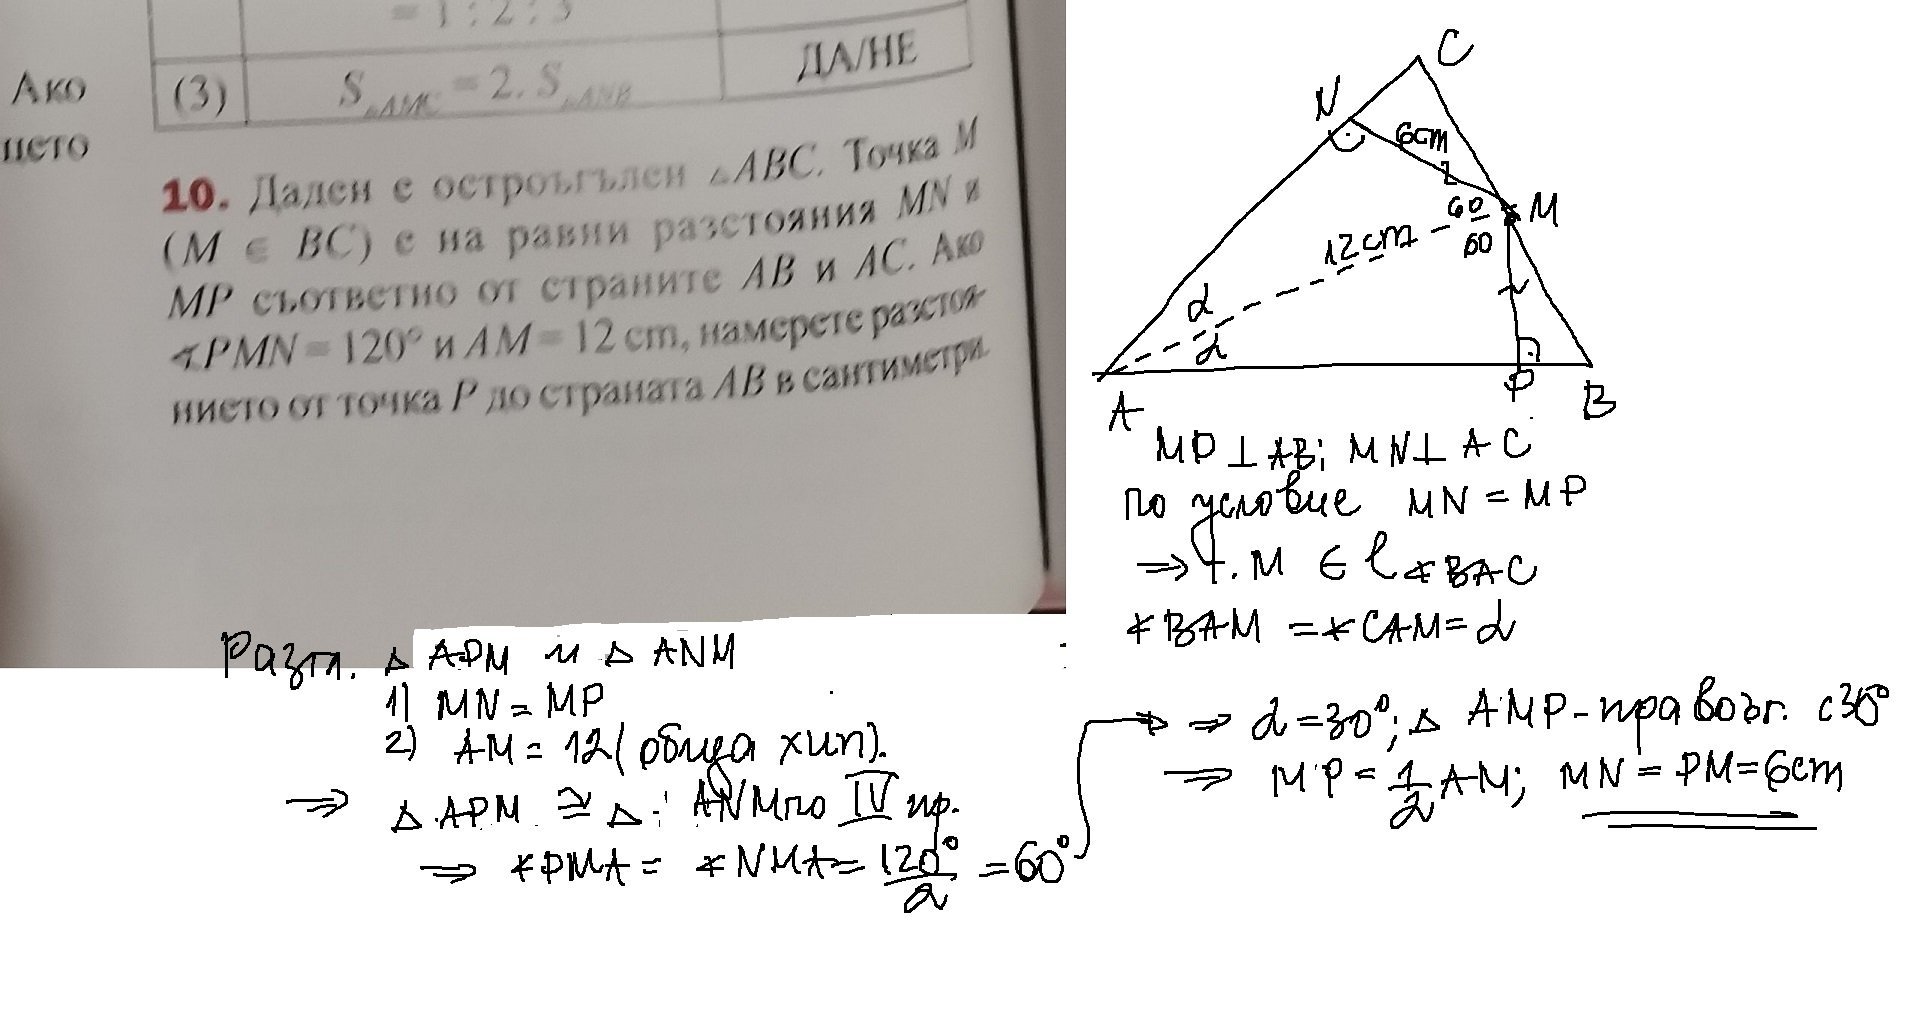 = 1 : 2 : 3
Ако
(3) S△AMC = 2. S△ANB ДА/НЕ
нето
10. Даден е остроъгълен △ABC. Точка M
(M ∈ BC) е на равни разстояния MN и
MP съответно от страните AB и AC. Ако
∢PMN = 120° и AM = 12 cm, намерете разстоя-
нието от точка P до страната AB в сантиметри.
C
N
6cm
M
60
60
12cm
α
α
A
P
B
MP ⊥ AB; MN ⊥ AC
по условие MN = MP
⇒ т. M ∈ l ∢BAC
∢BAM = ∢CAM = α
Разгл. △ APM и △ ANM
1) MN = MP
2) AM = 12 (обща хип).
⇒ △ APM ≅ △ ANM по IV пр.
⇒ ∢PMA = ∢NMA = 120°/2 = 60°
⇒ α = 30°; △ AMP - правоъг. с 30°
⇒ MP = 1/2 AM; MN = PM = 6cm